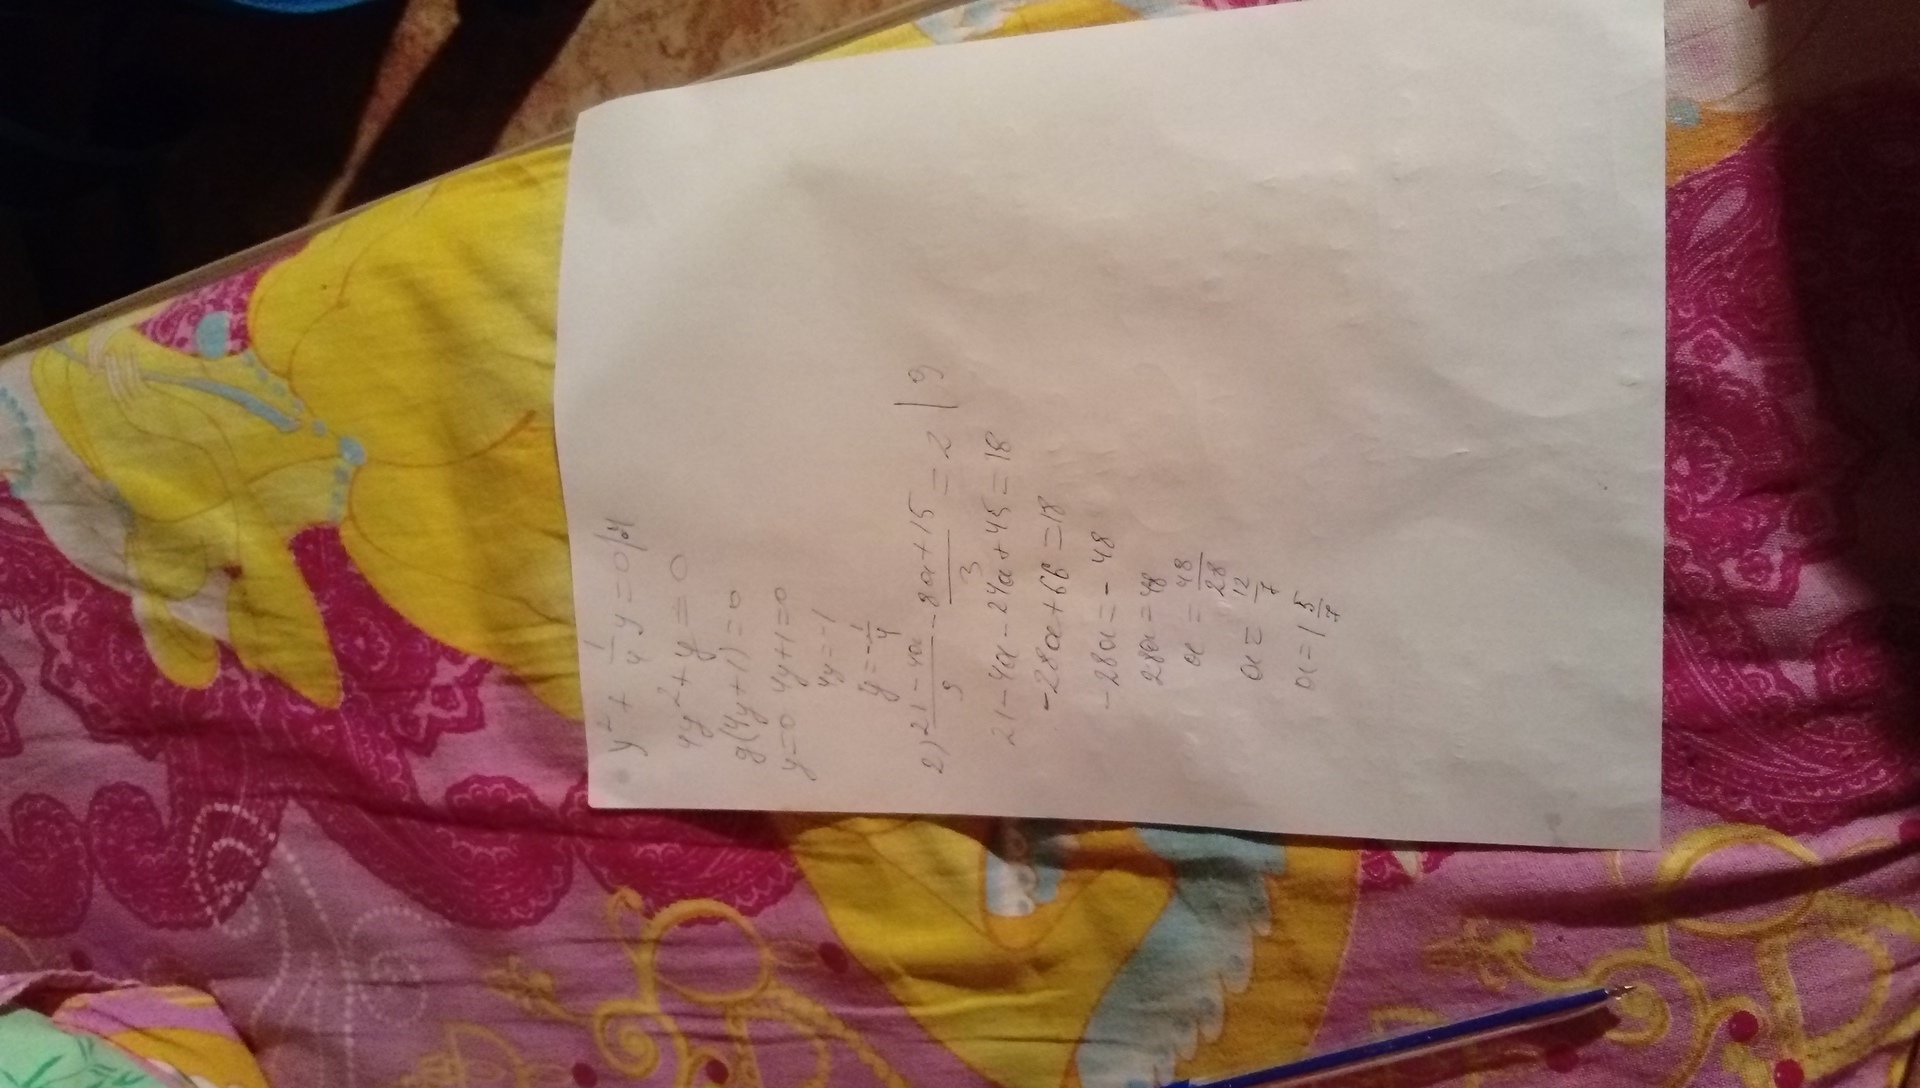 y² + 1/4 y = 0 |·4
4y² + y = 0
y(4y+1) = 0
y=0 4y+1=0
4y=-1
y=-1/4
2) 21-4a/9 - 8a+15/3 = 2 | 9
21-4a-24a+45=18
-28a+66=18
-28a=-48
28a=48
a=48/28
a=12/7
a=1 5/7